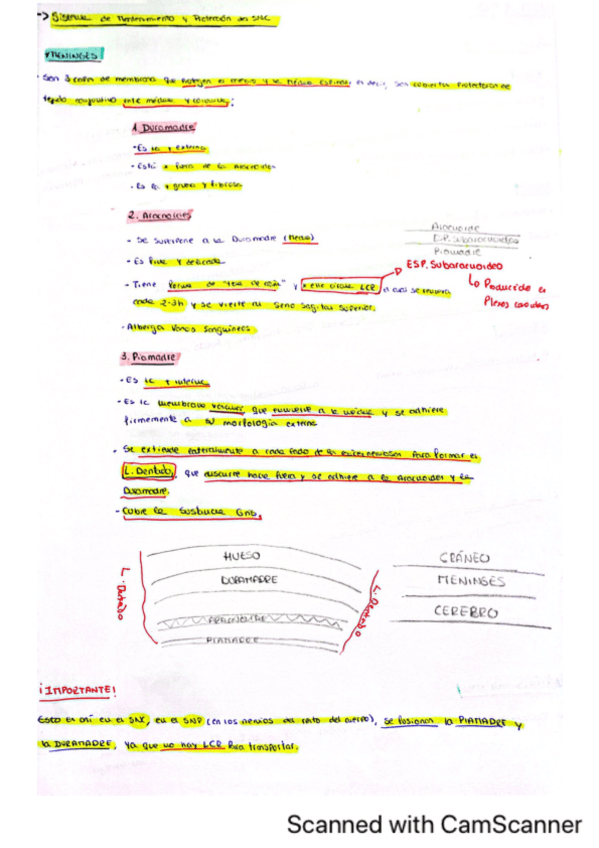 -> Sistemas de Mantenimiento y Protección del SNC
*MENINGES
Son 3 capas de membrana que protegen el cerebro y la médula espinal, es decir, son cubiertas protectoras de
tejido conjuntivo entre médula y columna:
1. Duramadre
- Es la + externa
- Está x fuera de la Aracnoides
- Es la + gruesa y fibrosa
2. Aracnoides
- Se superpone a la Duramadre (Medio)
- Es fina y delicada
- Tiene forma de "tela de araña" y x ella circula LCR el cual se renueva
cada 2-3h y se vierte al Seno Sagital Superior.
- Alberga Vasos Sanguíneos
Aracnoide
ESP. Subaracnoideo
Piamadre
ESP. Subaracnoideo
Producido en
Plexos coroideos
3. Piamadre
- Es la + interna
- Es la membrana vascular que envuelve a la médula y se adhiere
firmemente a su morfología externa
- Se extiende lateralmente a cada lado de las raíces nerviosas para formar el
L. Dentado, que discurre hacia fuera y se adhiere a la Aracnoides y la
Duramadre.
- Cubre la Sustancia Gris.
HUESO
DURAMADRE
ARACNOIDE
PIAMADRE
L. Dentado
L. Dentado
CRÁNEO
MENINGES
CEREBRO
¡IMPORTANTE!
Esto es así en el SNC, en el SNP (en los nervios del resto del cuerpo), se fusionan la PIAMADRE y
la DURAMADRE, ya que no hay LCR para transportar.
Scanned with CamScanner